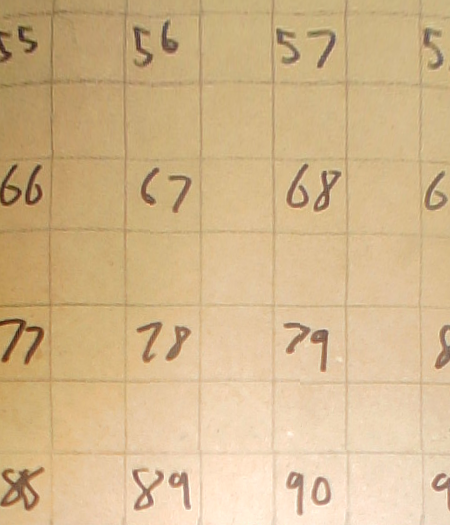 55 56 57 5
66 67 68 6
77 78 79 8
88 89 90 9